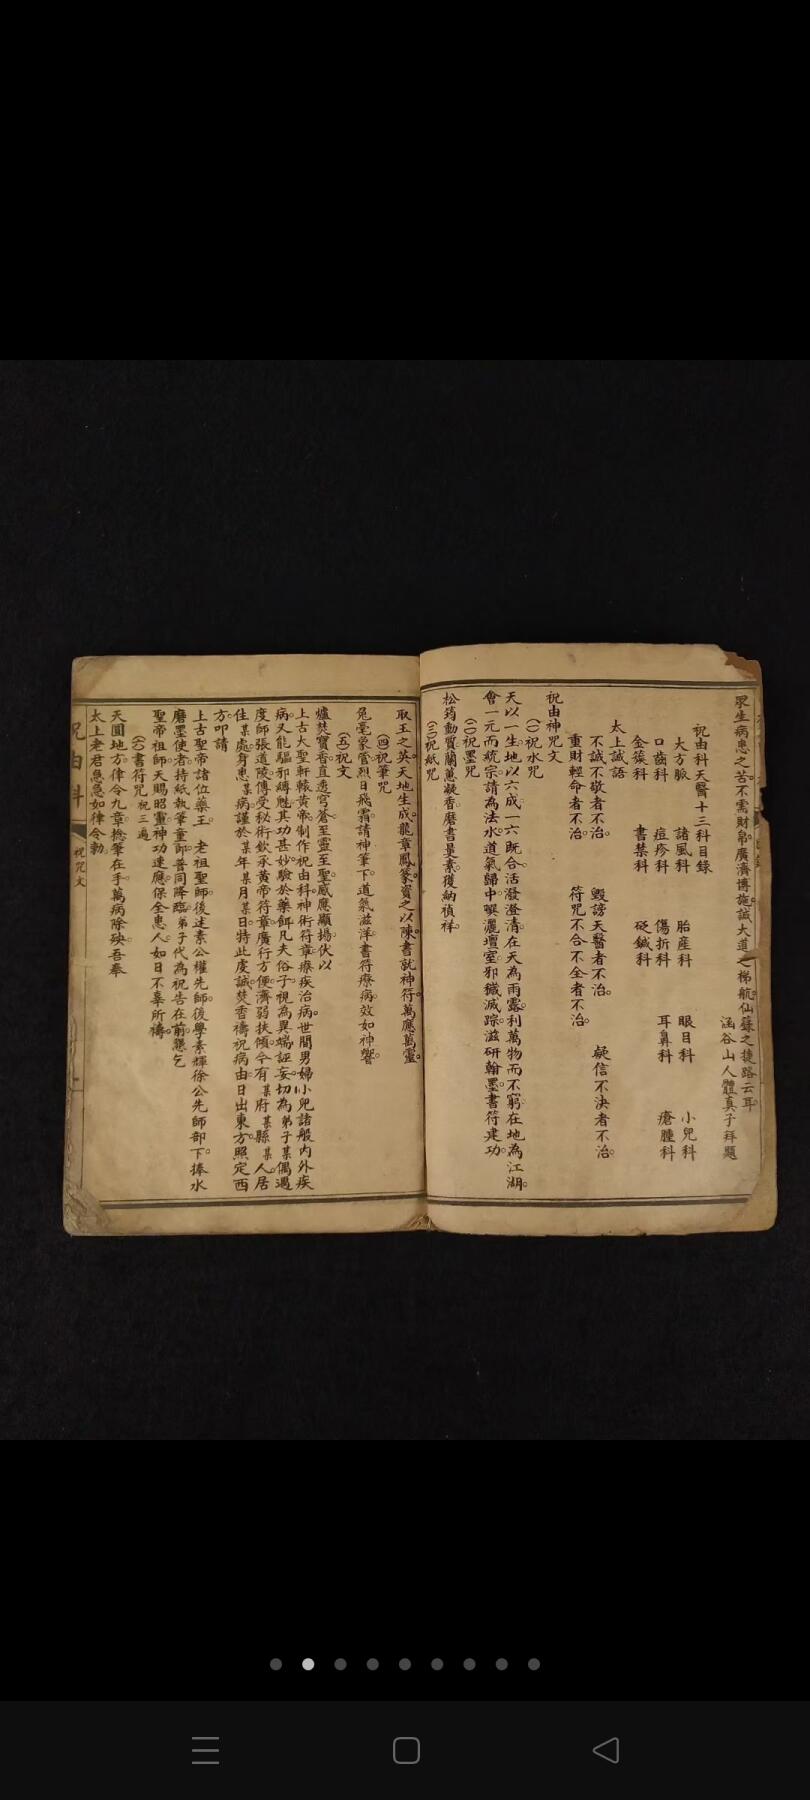 眾生病患之苦不需財帛廣濟博施誠大道之梯航仙蘇之捷路云耳
涵谷山人體真子拜題
祝由科天醫十三科目錄
大方脈 諸風科 胎產科 眼目科 小兒科
口齒科 痘疹科 傷折科 耳鼻科 瘡腫科
金簇科 書禁科 砭鍼科
太上誡語
不誠不敬者不治 毀謗天醫者不治 疑信不決者不治
重財輕命者不治 符咒不合不全者不治
祝由神咒文
(一)祝水咒
天以一生地以六成一六既合活潑澄清在天為雨露利萬物而不窮在地為江湖
會一元而統宗請為法水道氣歸中噀灑壇室邪穢滅踪滋研翰墨書符建功
(二)祝墨咒
松筠動質蘭蕙凝香磨書昊素獲納禎祥
(三)祝紙咒
取玉之英天地生成龍章鳳篆資之以陳書就神符萬應萬靈
(四)祝筆咒
兔毫象管烈日飛霜請神筆下道氣滋洋書符療病效如神響
(五)祝文
爐焚寶香直透穹蒼至靈至聖感應顯揚伏以
上古大聖軒轅黃帝制作祝由科神術符章療疾治病世間男婦小兒諸般內外疾
病又能驅邪縛魅其功甚妙驗於藥餌凡夫俗子視為異端誣妄切為弟子某偶遇
度師張道陵傳受秘術欽承黃帝符章廣行方便濟弱扶傾今有某府某縣某人居
住某處身患某病謹於某年某月某日特此虔誠焚香禱祝病由日出東方照定西
方叩請
上古聖帝諸位藥王 老祖聖師後述素公權先師後學素輝徐公先師部下捧水
磨墨使者持紙執筆童郎普同降臨弟子代為祝告在前懇乞
聖帝祖師天賜昭靈神功速應保全患人如日不辜所禱
(六)書符咒 祝三遍
天圓地方律令九章捻筆在手萬病除殃吾奉
太上老君急急如律令勅
祝由科
祝咒文